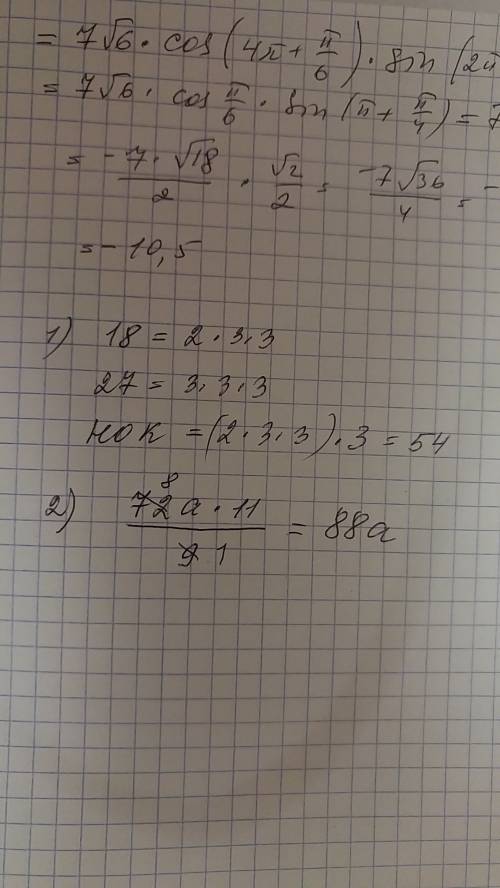 = 7√6 · cos (4π + π/6) · sin (2π
= 7√6 · cos π/6 · sin (π + π/4) = 7
= -7·√18/2 · √2/2 = -7√36/4 = -
= - 10,5
1) 18 = 2·3·3
27 = 3·3·3
НОК = (2·3·3)·3 = 54
2) 72 8 a · 11 / 9 1 = 88a